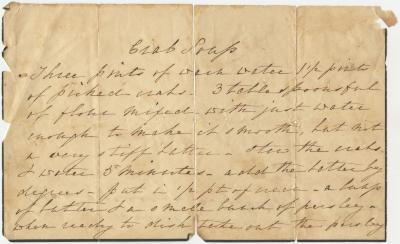 Crab Soup
Three pints of warm water 1½ pints
of picked crabs - 3 tablespoonsful
of flour mixed with just water
enough to make it smooth, but not
a very stiff batter - stew the crabs
& water 5 minutes - add the batter by
degrees - put in ½ pt of - a lump
of butter & a small bunch of parsley -
when ready to dish take out the parsley